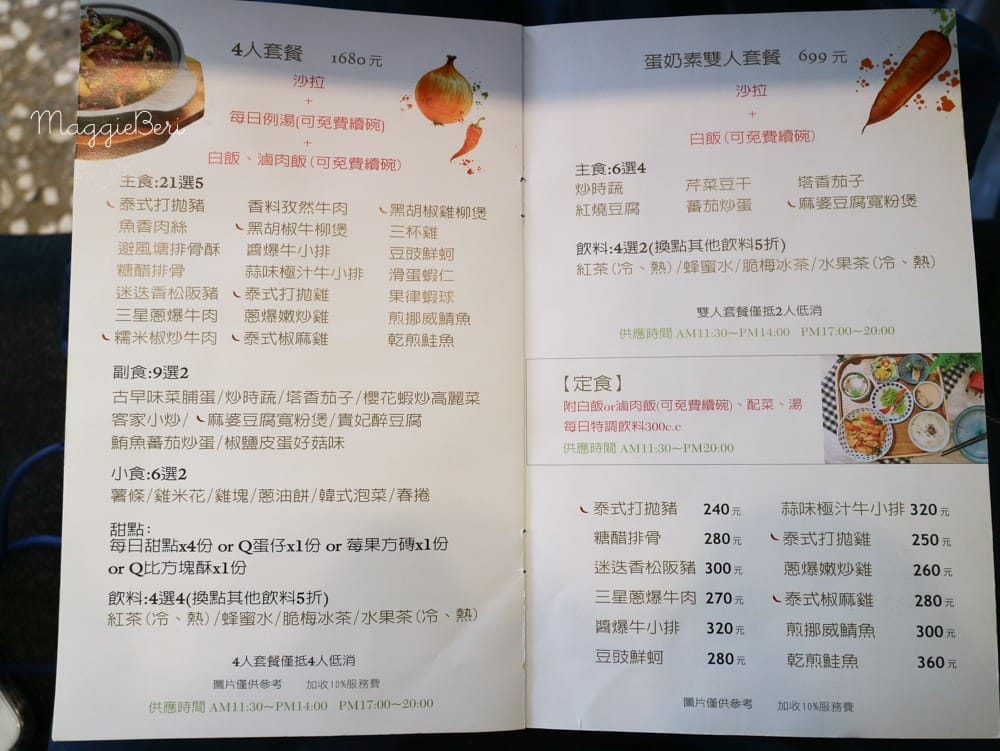 MaggieBeri
4人套餐 1680元
沙拉
+
每日例湯(可免費續碗)
+
白飯、滷肉飯(可免費續碗)
主食:21選5
泰式打拋豬 香料孜然牛肉 黑胡椒雞柳煲
魚香肉絲 黑胡椒牛柳煲 三杯雞
避風塘排骨酥 醬爆牛小排 豆豉鮮蚵
糖醋排骨 蒜味極汁牛小排 滑蛋蝦仁
迷迭香松阪豬 泰式打拋雞 果律蝦球
三星蔥爆牛肉 蔥爆嫩炒雞 煎挪威鯖魚
糯米椒炒牛肉 泰式椒麻雞 乾煎鮭魚
副食:9選2
古早味菜脯蛋/炒時蔬/塔香茄子/櫻花蝦炒高麗菜
客家小炒/麻婆豆腐寬粉煲/貴妃醉豆腐
鮪魚蕃茄炒蛋/椒鹽皮蛋好菇味
小食:6選2
薯條/雞米花/雞塊/蔥油餅/韓式泡菜/春捲
甜點:
每日甜點x4份 or Q蛋仔x1份 or 莓果方磚x1份
or Q比方塊酥x1份
飲料:4選4(換點其他飲料5折)
紅茶(冷、熱)/蜂蜜水/脆梅冰茶/水果茶(冷、熱)
4人套餐僅抵4人低消
圖片僅供參考 加收10%服務費
供應時間 AM11:30~PM14:00 PM17:00~20:00
蛋奶素雙人套餐 699元
沙拉
+
白飯(可免費續碗)
主食:6選4
炒時蔬 芹菜豆干 塔香茄子
紅燒豆腐 蕃茄炒蛋 麻婆豆腐寬粉煲
飲料:4選2(換點其他飲料5折)
紅茶(冷、熱)/蜂蜜水/脆梅冰茶/水果茶(冷、熱)
雙人套餐僅抵2人低消
供應時間 AM11:30~PM14:00 PM17:00~20:00
【定食】
附白飯or滷肉飯(可免費續碗)、配菜、湯
每日特調飲料300c.c
供應時間 AM11:30~PM20:00
泰式打拋豬 240元 蒜味極汁牛小排 320元
糖醋排骨 280元 泰式打拋雞 250元
迷迭香松阪豬 300元 蔥爆嫩炒雞 260元
三星蔥爆牛肉 270元 泰式椒麻雞 280元
醬爆牛小排 320元 煎挪威鯖魚 300元
豆豉鮮蚵 280元 乾煎鮭魚 360元
圖片僅供參考 加收10%服務費